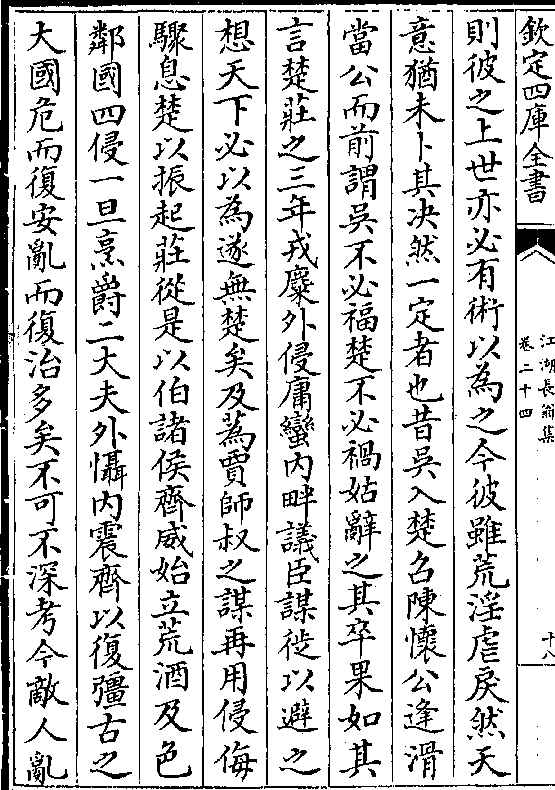 欽定四庫全書
江湖長翁集
卷二十四
十八
則彼之上世亦必有術以為之今彼雖荒淫虐戾然天
意猶未卜其决然一定者也昔吳入楚召陳懷公逢滑
當公而前謂吳不必福楚不必禍姑辭之其卒果如其
言楚莊之三年戎麋外侵庸蠻内畔議臣謀徙以避之
想天下必以為遂無楚矣及蒍賈師叔之謀再用侵侮
驟息楚以振起莊從是以伯諸侯齊威始立荒酒及色
鄰國四侵一旦烹爵二大夫外懾内震齊以復彊古之
大國危而復安亂而復治多矣不可不深考今敵人亂